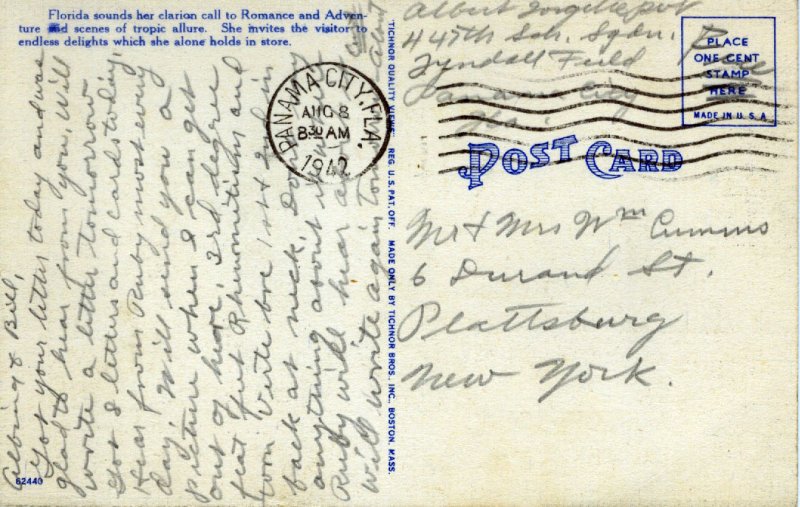 Florida sounds her clarion call to Romance and Adven-
ture and scenes of tropic allure. She invites the visitor to
endless delights which she alone holds in store.
Albina & Bill,
Got your letter today and was
glad to hear from you. Will
write a letter tomorrow.
Got 8 letters and cards today
Hear from Ruby most every
day. Will send you a
picture when I can get
out of here. 3rd degree
flat feet Rheumatism and
torn Verte bre 1st & 2nd in
back at neck. Don't
anything about
Ruby will hear
will write again
62440
TICHNOR QUALITY VIEWS REG. U. S. PAT. OFF. MADE ONLY BY TICHNOR BROS., INC., BOSTON, MASS.
PANAMA CITY, FLA.
AUG 8
8 30 AM
1942
Albert
447th Sch. Sqdn.
Tyndall Field
Panama City
Fla.
Free
PLACE
ONE CENT
STAMP
HERE
MADE IN U. S. A.
POST CARD
Mr & Mrs Wm Cummins
6 Durand St.
Plattsburg
New York.